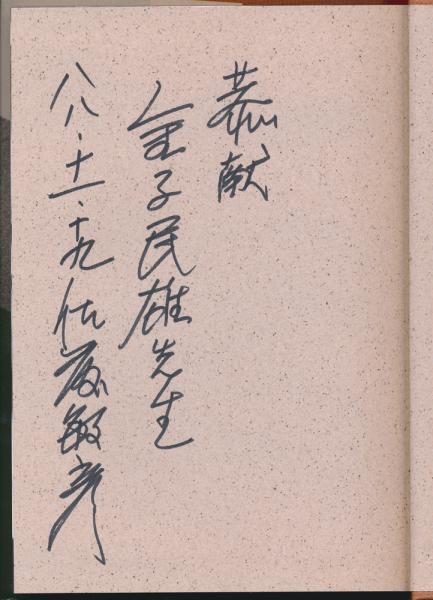 恭献
金子民雄先生
八八・十一・十九 佐藤敏彦